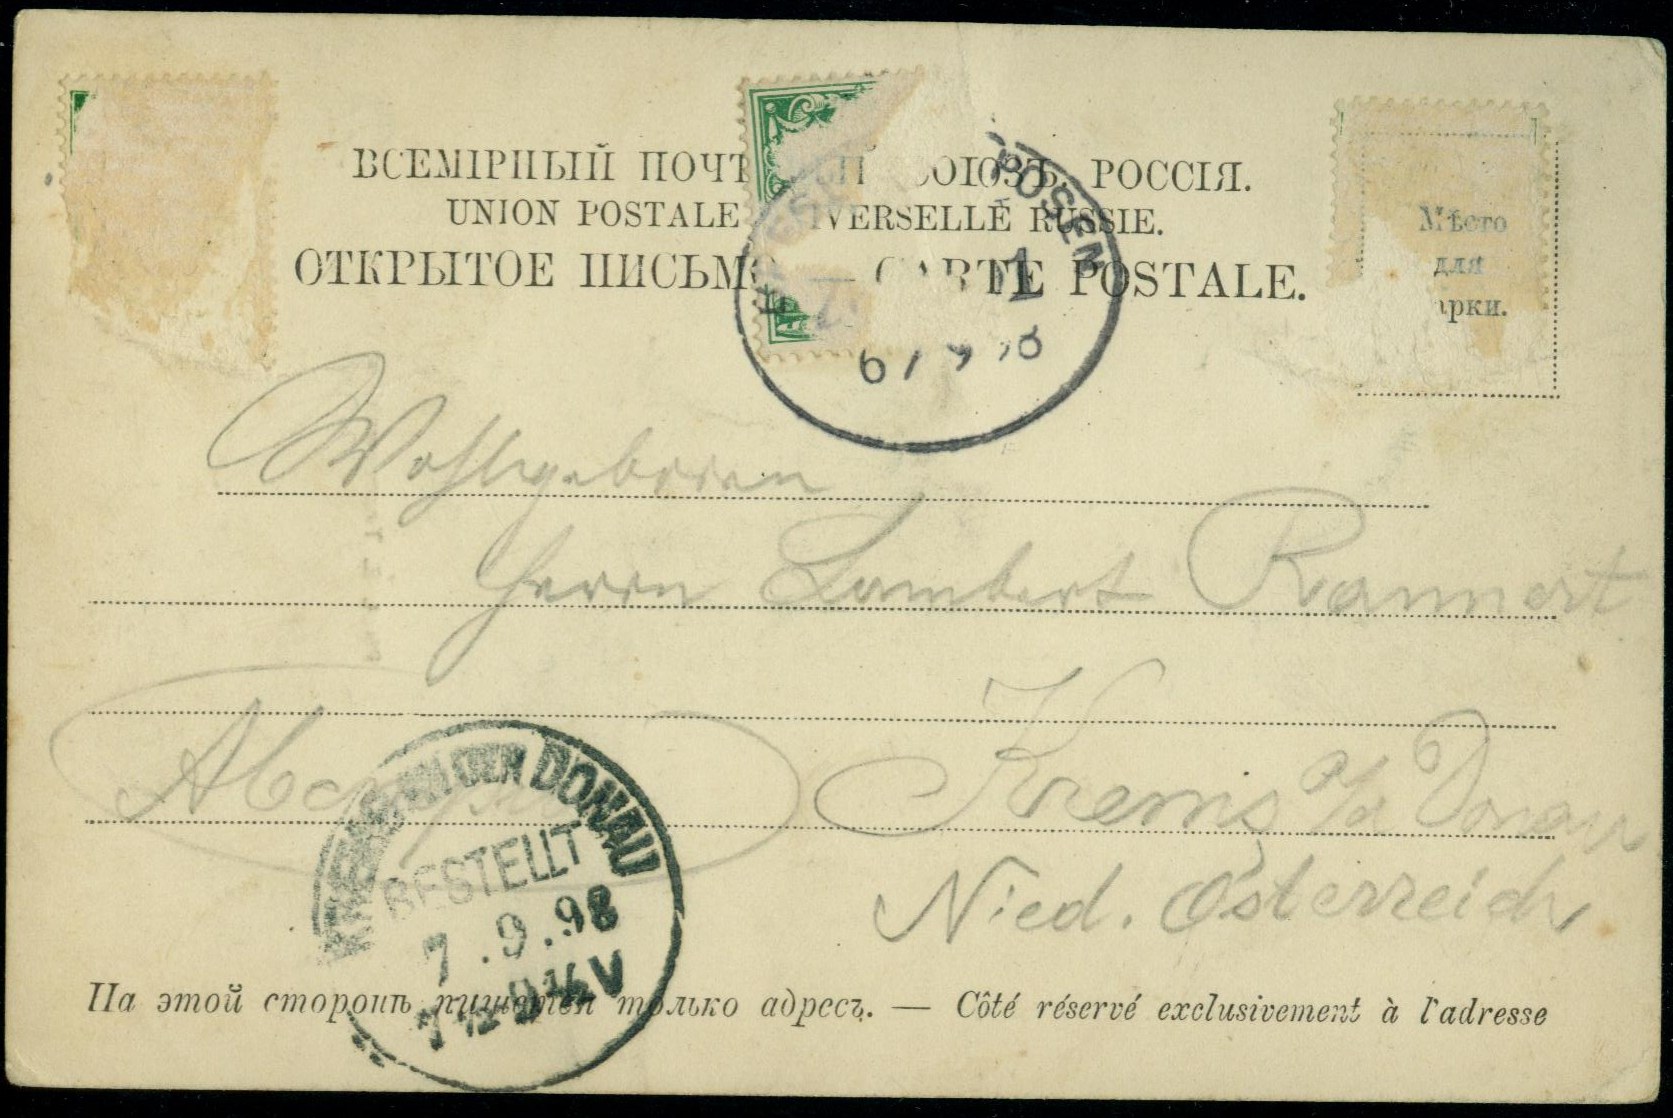 ВСЕМІРНЫЙ ПОЧТ ОЮЗЪ. РОССІЯ.
UNION POSTALE IVERSELLE RUSSIE.
ОТКРЫТОЕ ПИСЬМО — CARTE POSTALE.
Мѣсто
для
арки.
POSEN
1
6/9 98
Wohlgeboren
Herrn Lambert Rammert
Krems a/d Donau
Nied. Österreich
KREMS AN DER DONAU
BESTELLT
7.9.98
На этой сторонѣ пишется только адресъ. — Côté réservé exclusivement à l'adresse